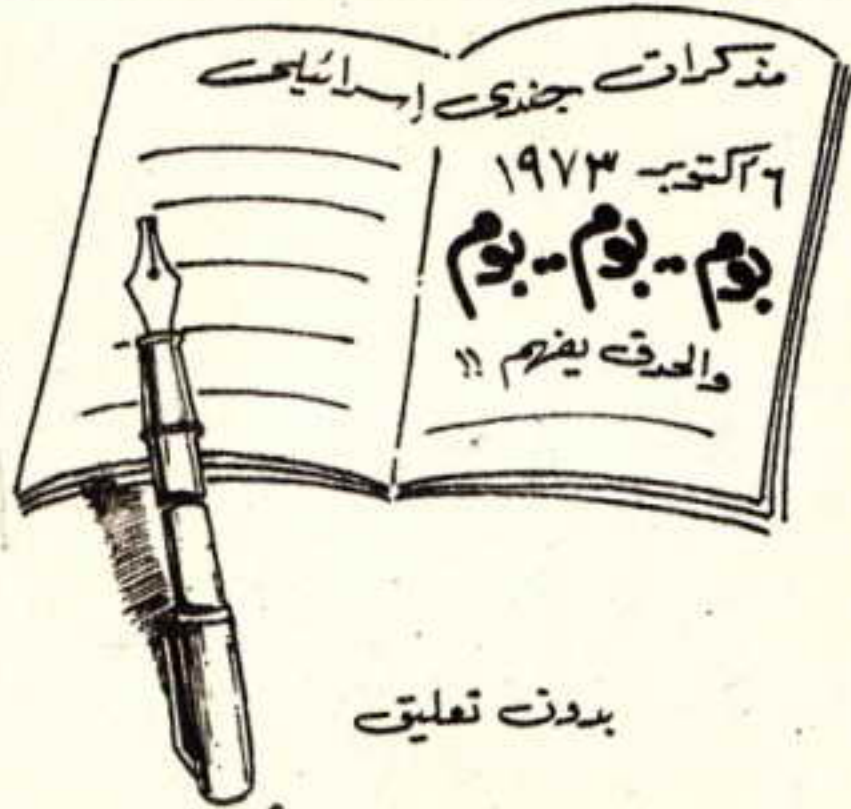 مذكرات جندى إسرائيلى
٦ أكتوبر ١٩٧٣
بوم -- بوم -- بوم
والحدق يفهم !!
بدون تعليق